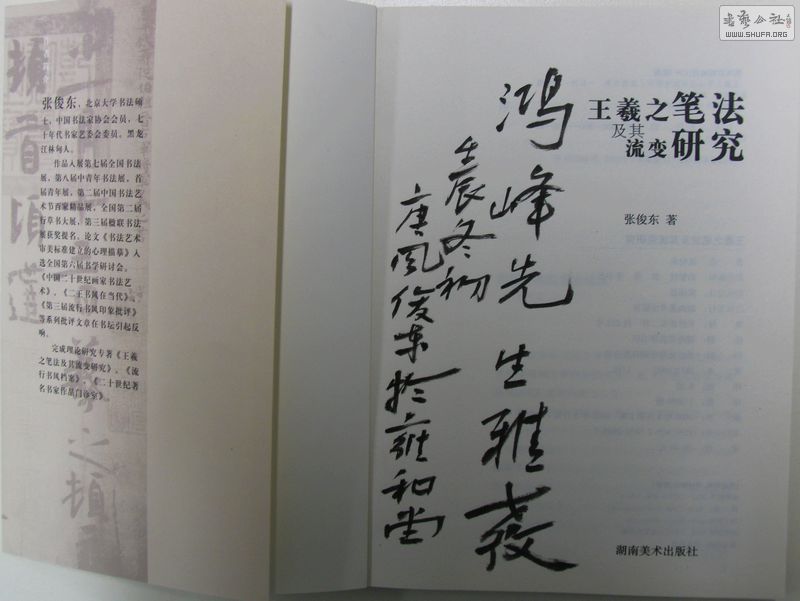 张俊东，北京大学书法硕
士，中国书法家协会会员，七
十年代书家艺委会委员，黑龙
江林甸人。
作品入展第七届全国书法
展，第八届中青年书法展，首
届青年展，第二届中国书法艺
术节百家精品展，全国第二届
行草书大展，第三届楹联书法
展获奖提名。论文《书法艺术
审美标准建立的心理描摹》入
选全国第六届书学研讨会。
《中国二十世纪画家书法艺
术》、《二王书风在当代》、
《第三届流行书风印象批评》
等系列批评文章在书坛引起反
响。
完成理论研究专著《王羲
之笔法及其流变研究》、《流
行书风档案》、《二十世纪著
名书家作品门诊室》。
书艺公社
WWW.SHUFA.ORG
王羲之笔法
及其
流变研究
张俊东 著
鸿峰先生雅教
壬辰冬初
唐风俊东於雍和堂
湖南美术出版社